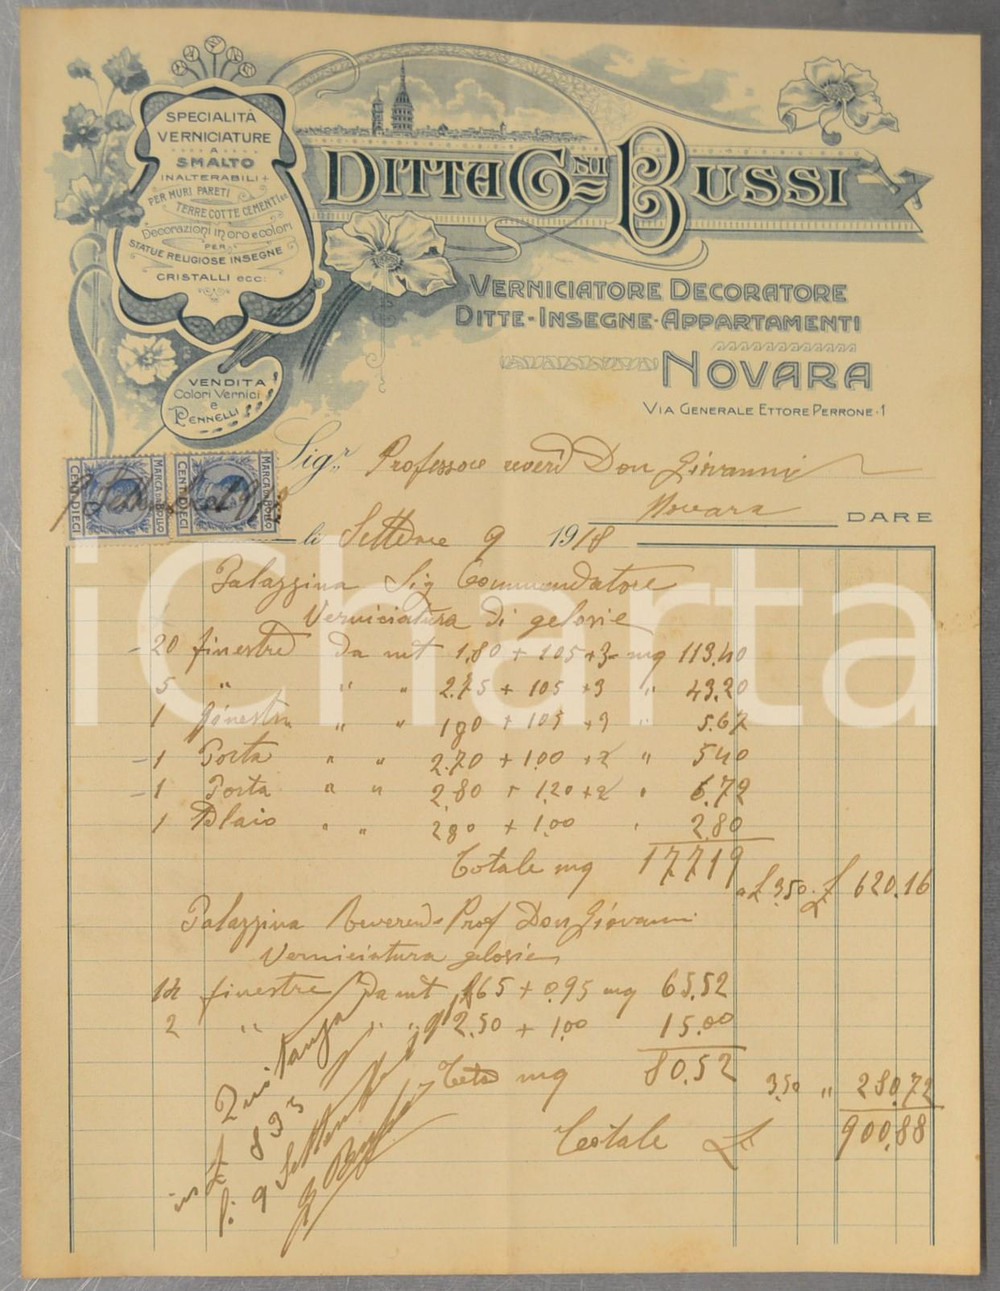 SPECIALITÀ
VERNICIATURE
A
SMALTO
INALTERABILI
PER MURI PARETI
TERRECOTTE CEMENTI ecc
Decorazioni in oro e colori
PER
STATUE RELIGIOSE INSEGNE
CRISTALLI ecc:
DITTA G.NI BUSSI
VERNICIATORE DECORATORE
DITTE-INSEGNE-APPARTAMENTI
NOVARA
VIA GENERALE ETTORE PERRONE-1
VENDITA
Colori Vernici
e
PENNELLI
Sig.r Professore reverd Don Giovanni
Novara
DARE
MARCA DA BOLLO
CENT. DIECI
MARCA DA BOLLO
CENT. DIECI
li Settembre 9 1918
Palazzina Sig Commendatore
Verniciatura di gelosie
20 finestre da mt 1,80 + 105 +3 mq 113.40
5 " " " 2.75 + 105 +3 " 43.20
1 finestra " " 180 + 105 +3 " 5.67
1 Porta " " 2.70 + 1.00 +2 " 5.40
1 Porta " " 2.80 + 1.20 +2 " 6.72
1 Telaio " " 280 + 1.00 " 2.80
Totale mq 177.19 a £ 3.50 £ 620.16
Palazzina Reverendo Prof Don Giovanni
Verniciatura gelosie
14 finestre da mt 1,65 + 0.95 mq 65.52
2 " " " 2.50 + 1.00 15.00
Tot mq 80.52 3.50 " 280.72
Totale £ 900.88
Quitanza
in £ 893
li 9 Settembre
iCharta